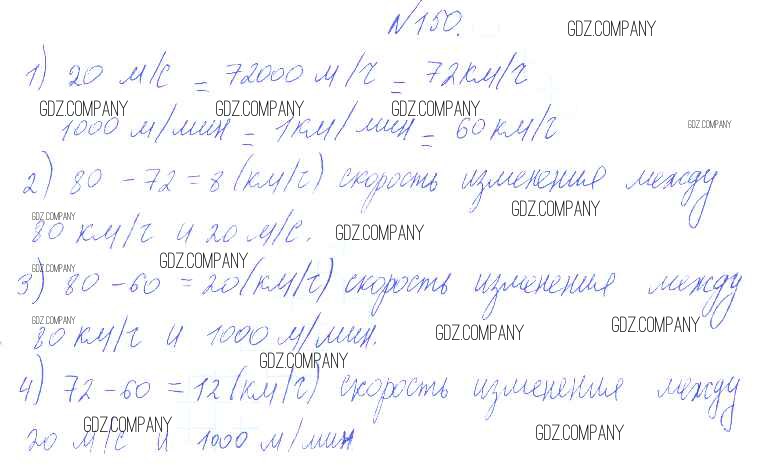 №150.
GDZ.COMPANY
1) 20 м/с = 72000 м/ч = 72км/ч
GDZ.COMPANY GDZ.COMPANY GDZ.COMPANY
1000 м/мин = 1км/мин = 60 км/ч
GDZ.COMPANY
2) 80 - 72 = 8 (км/ч) скорость изменения между
GDZ.COMPANY GDZ.COMPANY
80 км/ч и 20 м/с.
GDZ.COMPANY
GDZ.COMPANY GDZ.COMPANY
3) 80 - 60 = 20 (км/ч) скорость изменения между
GDZ.COMPANY GDZ.COMPANY GDZ.COMPANY
80 км/ч и 1000 м/мин.
GDZ.COMPANY
4) 72 - 60 = 12 (км/ч) скорость изменения между
GDZ.COMPANY GDZ.COMPANY
20 м/с и 1000 м/мин